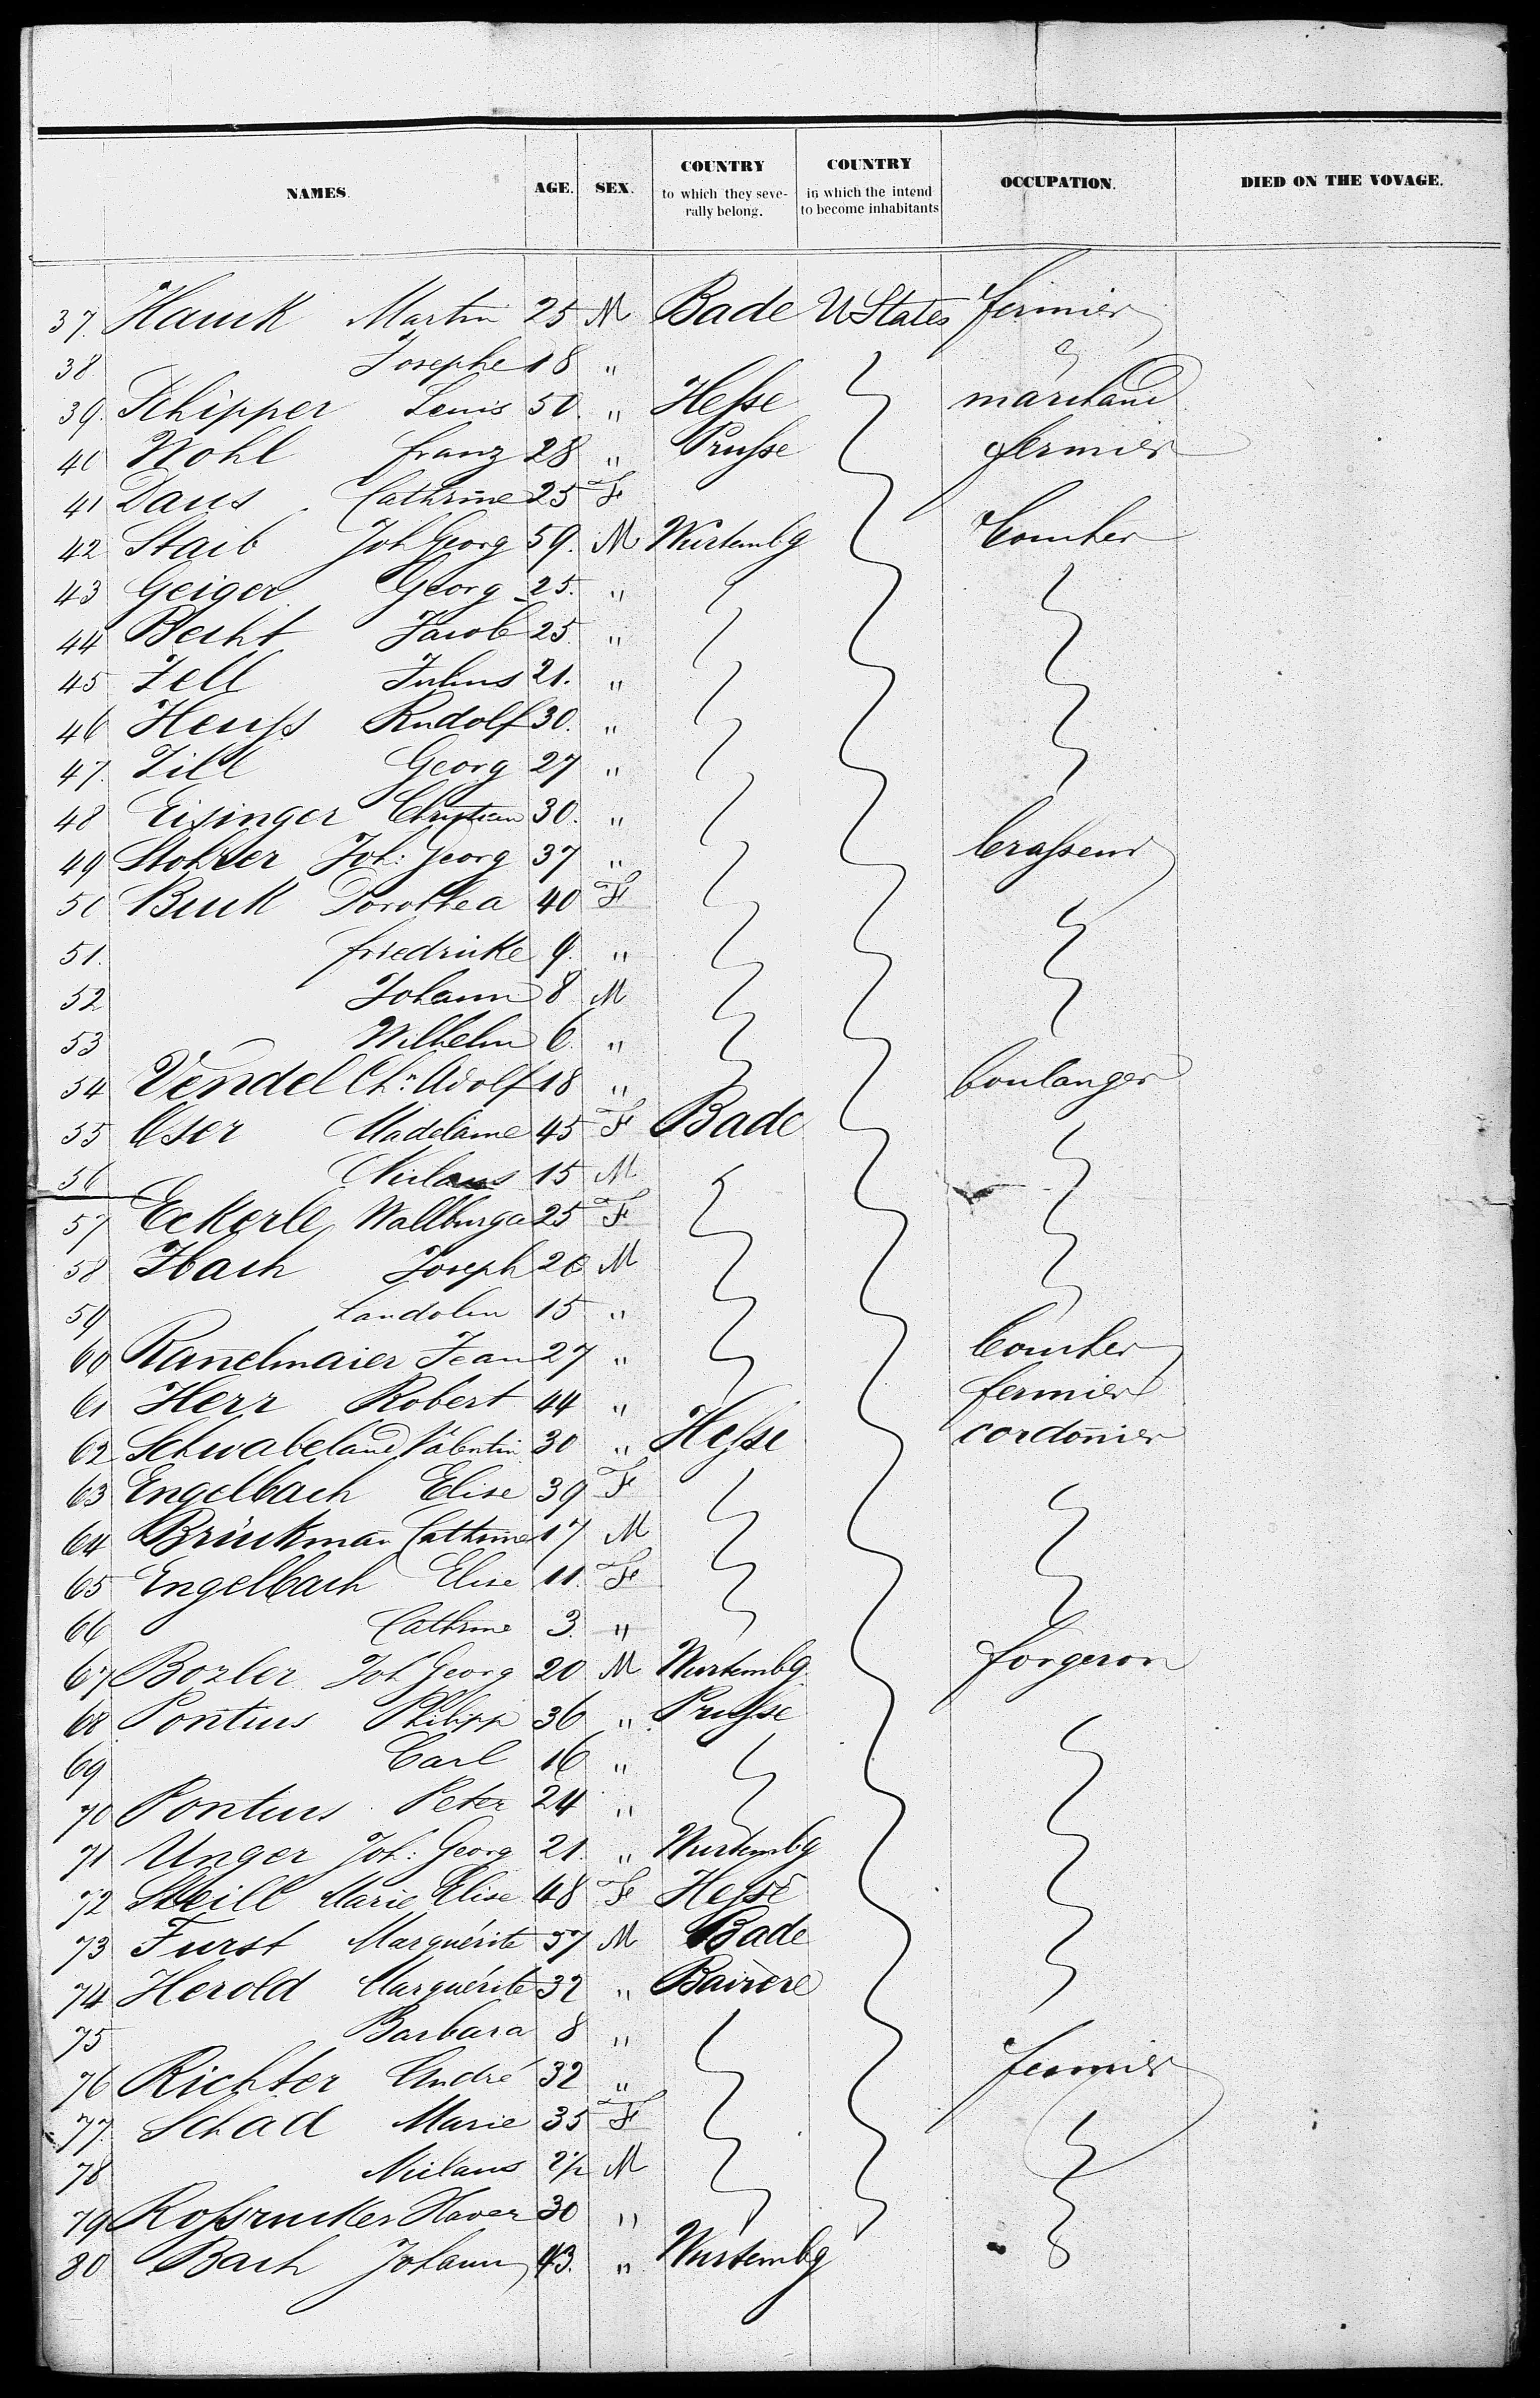 NAMES. AGE. SEX. COUNTRY to which they severally belong. COUNTRY in which the intend to become inhabitants OCCUPATION. DIED ON THE VOYAGE.
37. Hauck Martin 25 M Bade U States fermier
38 Josephe 18 "
39. Schipper Louis 50. " Hesse marchand
40 Wohl Franz 28 " Prusse fermier
41 Daus Cathrine 25 F
42 Staib Joh Georg 59. M Wurtembg
43 Geiger Georg 25. "
44 Becht Jacob 25 "
45 Zell Julius 21. "
46 Heuss Rudolf 30. "
47. Zill Georg 27 "
48 Eisinger Christian 30. "
49 Stohrer Joh: Georg 37 " brasseur
50 Buck Dorothea 40 F
51. Friedricke 9. "
52 Johann 8 M
53 Wilhelm 6 "
54 Vendel Chn Adolf 18 " boulanger
55 Oser Madelaine 45 F Bade
56 Niclaus 15 M
57 Eckerle Wallburga 25 F
58 Ibach Joseph 26 M
59 Landolin 15 "
60 Jean 27 "
61 Herr Robert 44 " fermier
62 Schwabeland Valentin 30 " Hesse cordonnier
63 Engelbach Elise 39 F
64 Brückman Cathrine 17 M
65 Engelbach Elise 11. F
66 Cathrine 3. "
67 Bozler Joh Georg 20 M Wurtembg forgeron
68 Pontius Philipp 36 " Prusse
69 Carl 16 "
70 Pontius Peter 24 "
71 Unger Joh: Georg 21. " Wurtembg
72 Marie Elise 48 F Hesse
73 Furst Marguérite 57 M Bade
74 Herold Marguérite 32 " Baviere
75 Barbara 8 "
76 Richter André 32 " fermier
77. Schad Marie 35 F
78 Niclaus 2½ M
79 Xaver 30 "
80 Bach Johann 43. " Wurtembg